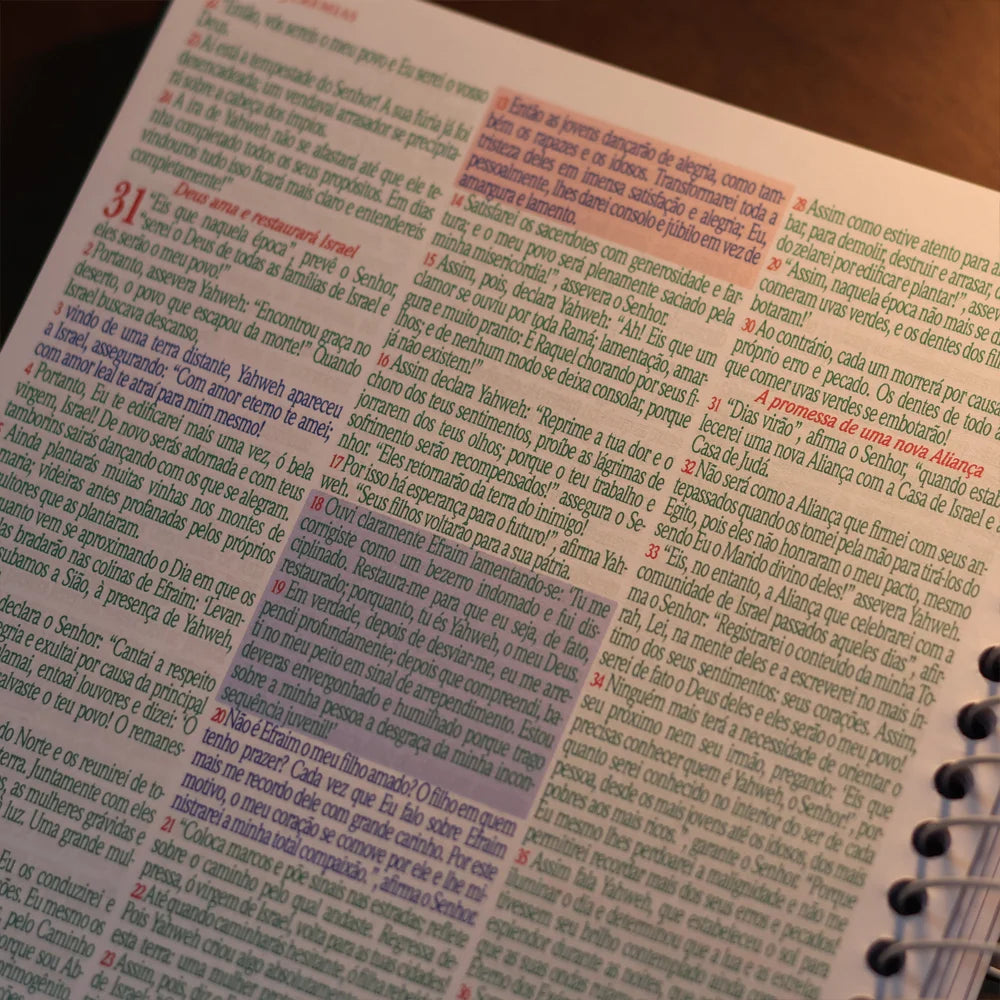 22 "Então, vós sereis o meu povo e Eu serei o vosso
Deus.
23 Aí está a tempestade do Senhor! A sua fúria já foi
desencadeada, um vendaval arrasador se precipita-
rá sobre a cabeça dos ímpios.
24 A ira de Yahweh não se afastará até que ele te-
nha completado todos os seus propósitos. Em dias
vindouros tudo isso ficará mais claro e entendereis
completamente!"
Deus ama e restaurará Israel
31 "Eis que naquela época", prevê o Senhor,
"serei o Deus de todas as famílias de Israel e
eles serão o meu povo!"
2 Portanto, assevera Yahweh: "Encontrou graça no
deserto, o povo que escapou da morte!" Quando
Israel buscava descanso,
3 vindo de uma terra distante, Yahweh apareceu
a Israel, assegurando: "Com amor eterno te amei;
com amor leal te atraí para mim mesmo!
4 Portanto, Eu te edificarei mais uma vez, ó bela
virgem, Israel! De novo serás adornada e com teus
tamborins sairás dançando com os que se alegram
Ainda plantarás muitas vinhas nos montes de
maria; videiras antes profanadas pelos próprios
ultores que as plantaram.
anto vem se aproximando o Dia em que os
las bradarão nas colinas de Efraim: 'Levan-
subamos a Sião, à presença de Yahweh,
declara o Senhor: "Cantai a respeito
gria e exultai por causa da principal
lamai, entoai louvores e dizei: 'Ó
alvaste o teu povo! O remanes-
do Norte e os reunirei de to-
terra. Juntamente com eles
s, as mulheres grávidas e
luz. Uma grande mul-
Eu os conduzirei e
ões. Eu mesmo os
pelo Caminho
orque sou Ab-
rimogênito
13 Então as jovens dançarão de alegria, como tam-
bém os rapazes e os idosos. Transformarei toda a
tristeza deles em imensa satisfação e alegria; Eu,
pessoalmente, lhes darei consolo e júbilo em vez de
amargura e lamento.
14 Satisfarei os sacerdotes com generosidade e far-
tura; e o meu povo será plenamente saciado pela
minha misericórdia!", assevera o Senhor.
15 Assim, pois, declara Yahweh: "Ah! Eis que um
clamor se ouviu por toda Ramá; lamentação, amar-
gura e muito pranto: É Raquel chorando por seus fi-
lhos; e de nenhum modo se deixa consolar, porque
já não existem!"
16 Assim declara Yahweh: "Reprime a tua dor e o
choro dos teus sentimentos, proíbe as lágrimas de
jorrarem dos teus olhos; porque o teu trabalho e
sofrimento serão recompensados!" assegura o Se-
nhor. "Eles retornarão da terra do inimigo!
17 Por isso há esperança para o futuro!", afirma Yah-
weh. "Seus filhos voltarão para a sua pátria.
18 Ouvi claramente Efraim lamentando-se: 'Tu me
corrigiste como um bezerro indomado e fui dis-
ciplinado. Restaura-me para que eu seja, de fato,
restaurado; porquanto, tu és Yahweh, o meu Deus.
19 Em verdade, depois de desviar-me, eu me arre-
pendi profundamente; depois que compreendi, ba-
ti no meu peito em sinal de arrependimento. Estou
deveras envergonhado e humilhado porque trago
sobre a minha pessoa a desgraça da minha incon-
sequência juvenil!'
20 Não é Efraim o meu filho amado? O filho em quem
tenho prazer? Cada vez que Eu falo sobre Efraim
mais me recordo dele com grande carinho. Por este
motivo, o meu coração se comove por ele e lhe mi-
nistrarei a minha total compaixão.", afirma o Senhor.
21 "Coloca marcos e põe sinais nas estradas, reflete
sobre o caminho pelo qual andaste. Regressa de-
pressa, ó virgem de Israel, volta para as tuas cidades.
22 Até quando caminharás hesitante, ó filha rebelde?
Pois Yahweh criou algo absolutamente
esta terra: uma mulher
23 Assim, pois, diz
de Israel:
28 Assim como estive atento para a
bar, para demolir, destruir e arrasar,
do zelarei por edificar e plantar!", asse
29 "Assim, naquela época não mais se d
comeram uvas verdes, e os dentes dos fil
botaram!'
30 Ao contrário, cada um morrerá por caus
próprio erro e pecado. Os dentes de todo
que comer uvas verdes se embotarão!
A promessa de uma nova Aliança
31 "Dias virão", afirma o Senhor, "quando esta
lecerei uma nova Aliança com a Casa de Israel e
Casa de Judá.
32 Não será como a Aliança que firmei com seus an-
tepassados quando os tomei pela mão para tirá-los do
Egito, pois eles não honraram o meu pacto, mesmo
sendo Eu o Marido divino deles!" assevera Yahweh.
33 "Eis, no entanto, a Aliança que celebrarei com a
comunidade de Israel passados aqueles dias", afir-
ma o Senhor: "Registrarei o conteúdo da minha To-
rah, Lei, na mente deles e a escreverei no mais ín-
timo dos seus sentimentos: seus corações. Assim,
serei de fato o Deus deles e eles serão o meu povo!
34 Ninguém mais terá a necessidade de orientar o
seu próximo nem seu irmão, pregando: 'Eis que
precisas conhecer quem é Yahweh, o Senhor!', por-
quanto serei conhecido no interior do ser de cada
pessoa, desde os mais jovens até os idosos, dos mais
pobres aos mais ricos.", garante o Senhor. "Porque
Eu mesmo lhes perdoarei a malignidade e não me
permitirei recordar mais dos seus erros e pecados!
35 Assim fala Yahweh, que estabeleceu o sol para
iluminar o dia e determinou que a lua e as estrelas
tivessem seu brilho contemplado
esplendor durante as noites, que
que as suas ondas
36